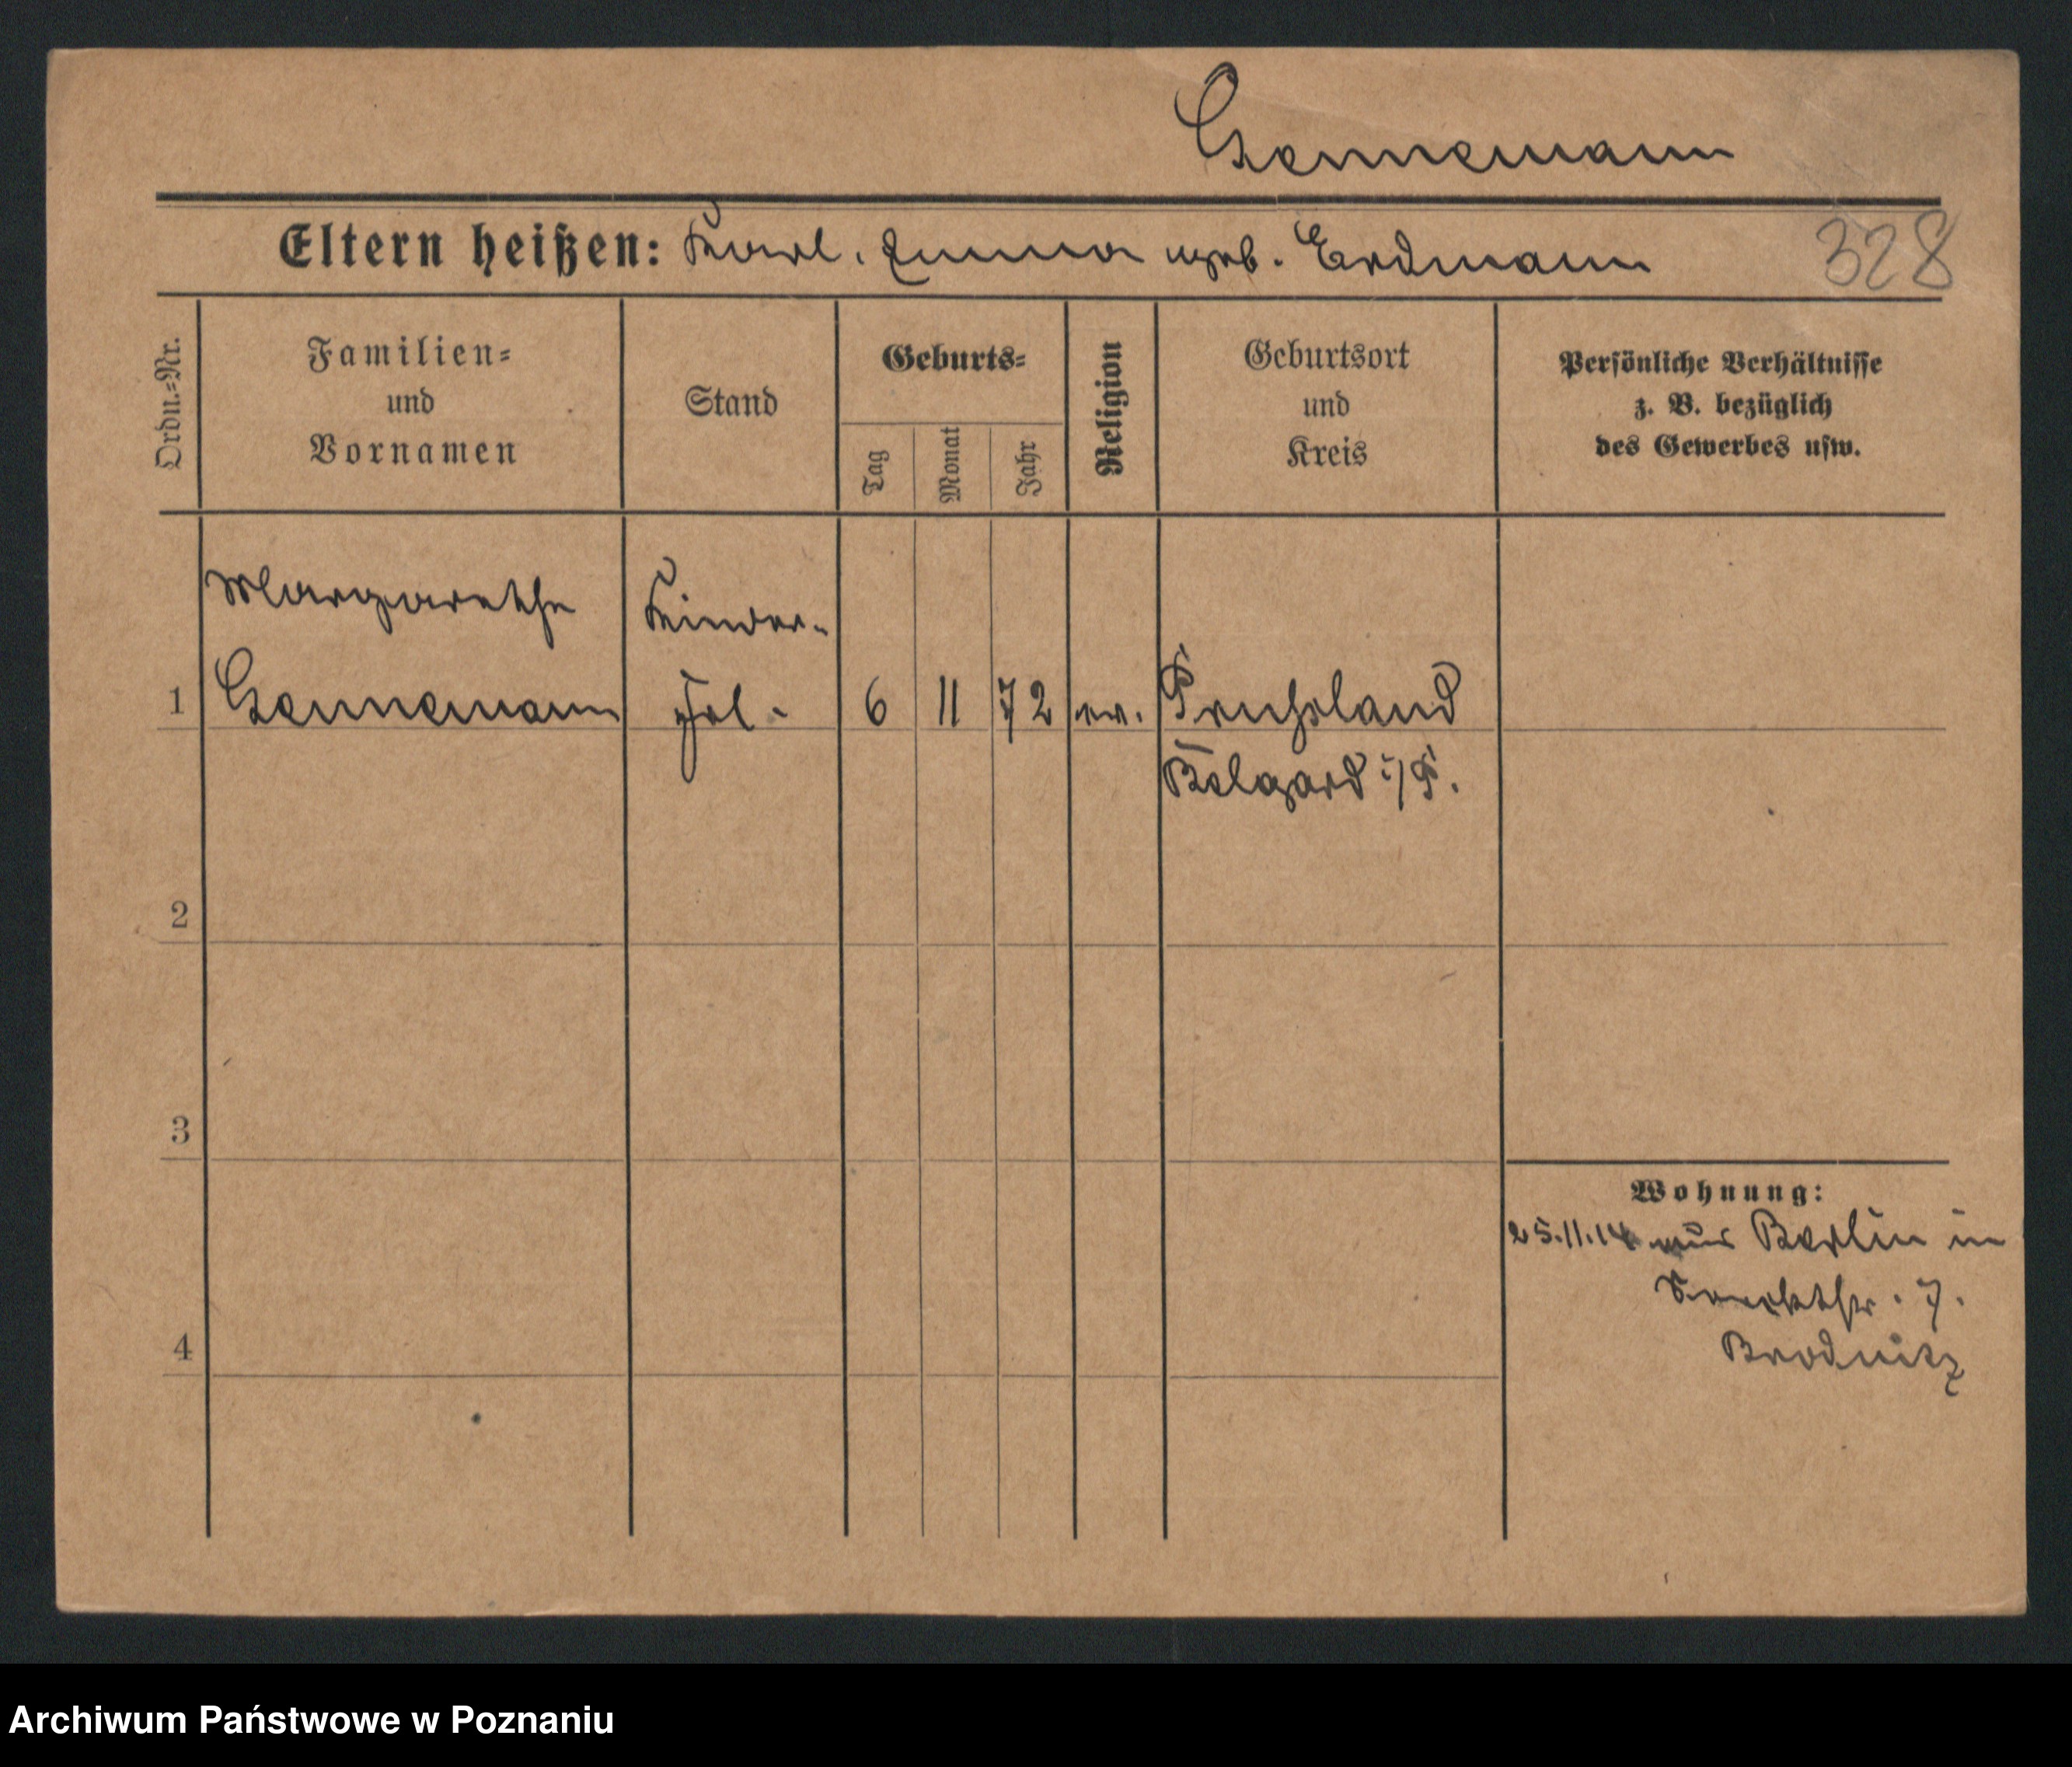 Gennemann
Eltern heißen: Karl, Emma geb. Erdmann 328
Ordn.-Nr.
Familien-
und
Vornamen
Stand
Geburts-
Tag
Monat
Jahr
Religion
Geburtsort
und
Kreis
Persönliche Verhältnisse
z. B. bezüglich
des Gewerbes usw.
Margarethe Kinder-
1 Gennemann frl. 6 11 72 ev.
Belgard i/P.
2
3
4
Wohnung:
25.11.14 aus Berlin in
7.
Brodnitz
Archiwum Państwowe w Poznaniu